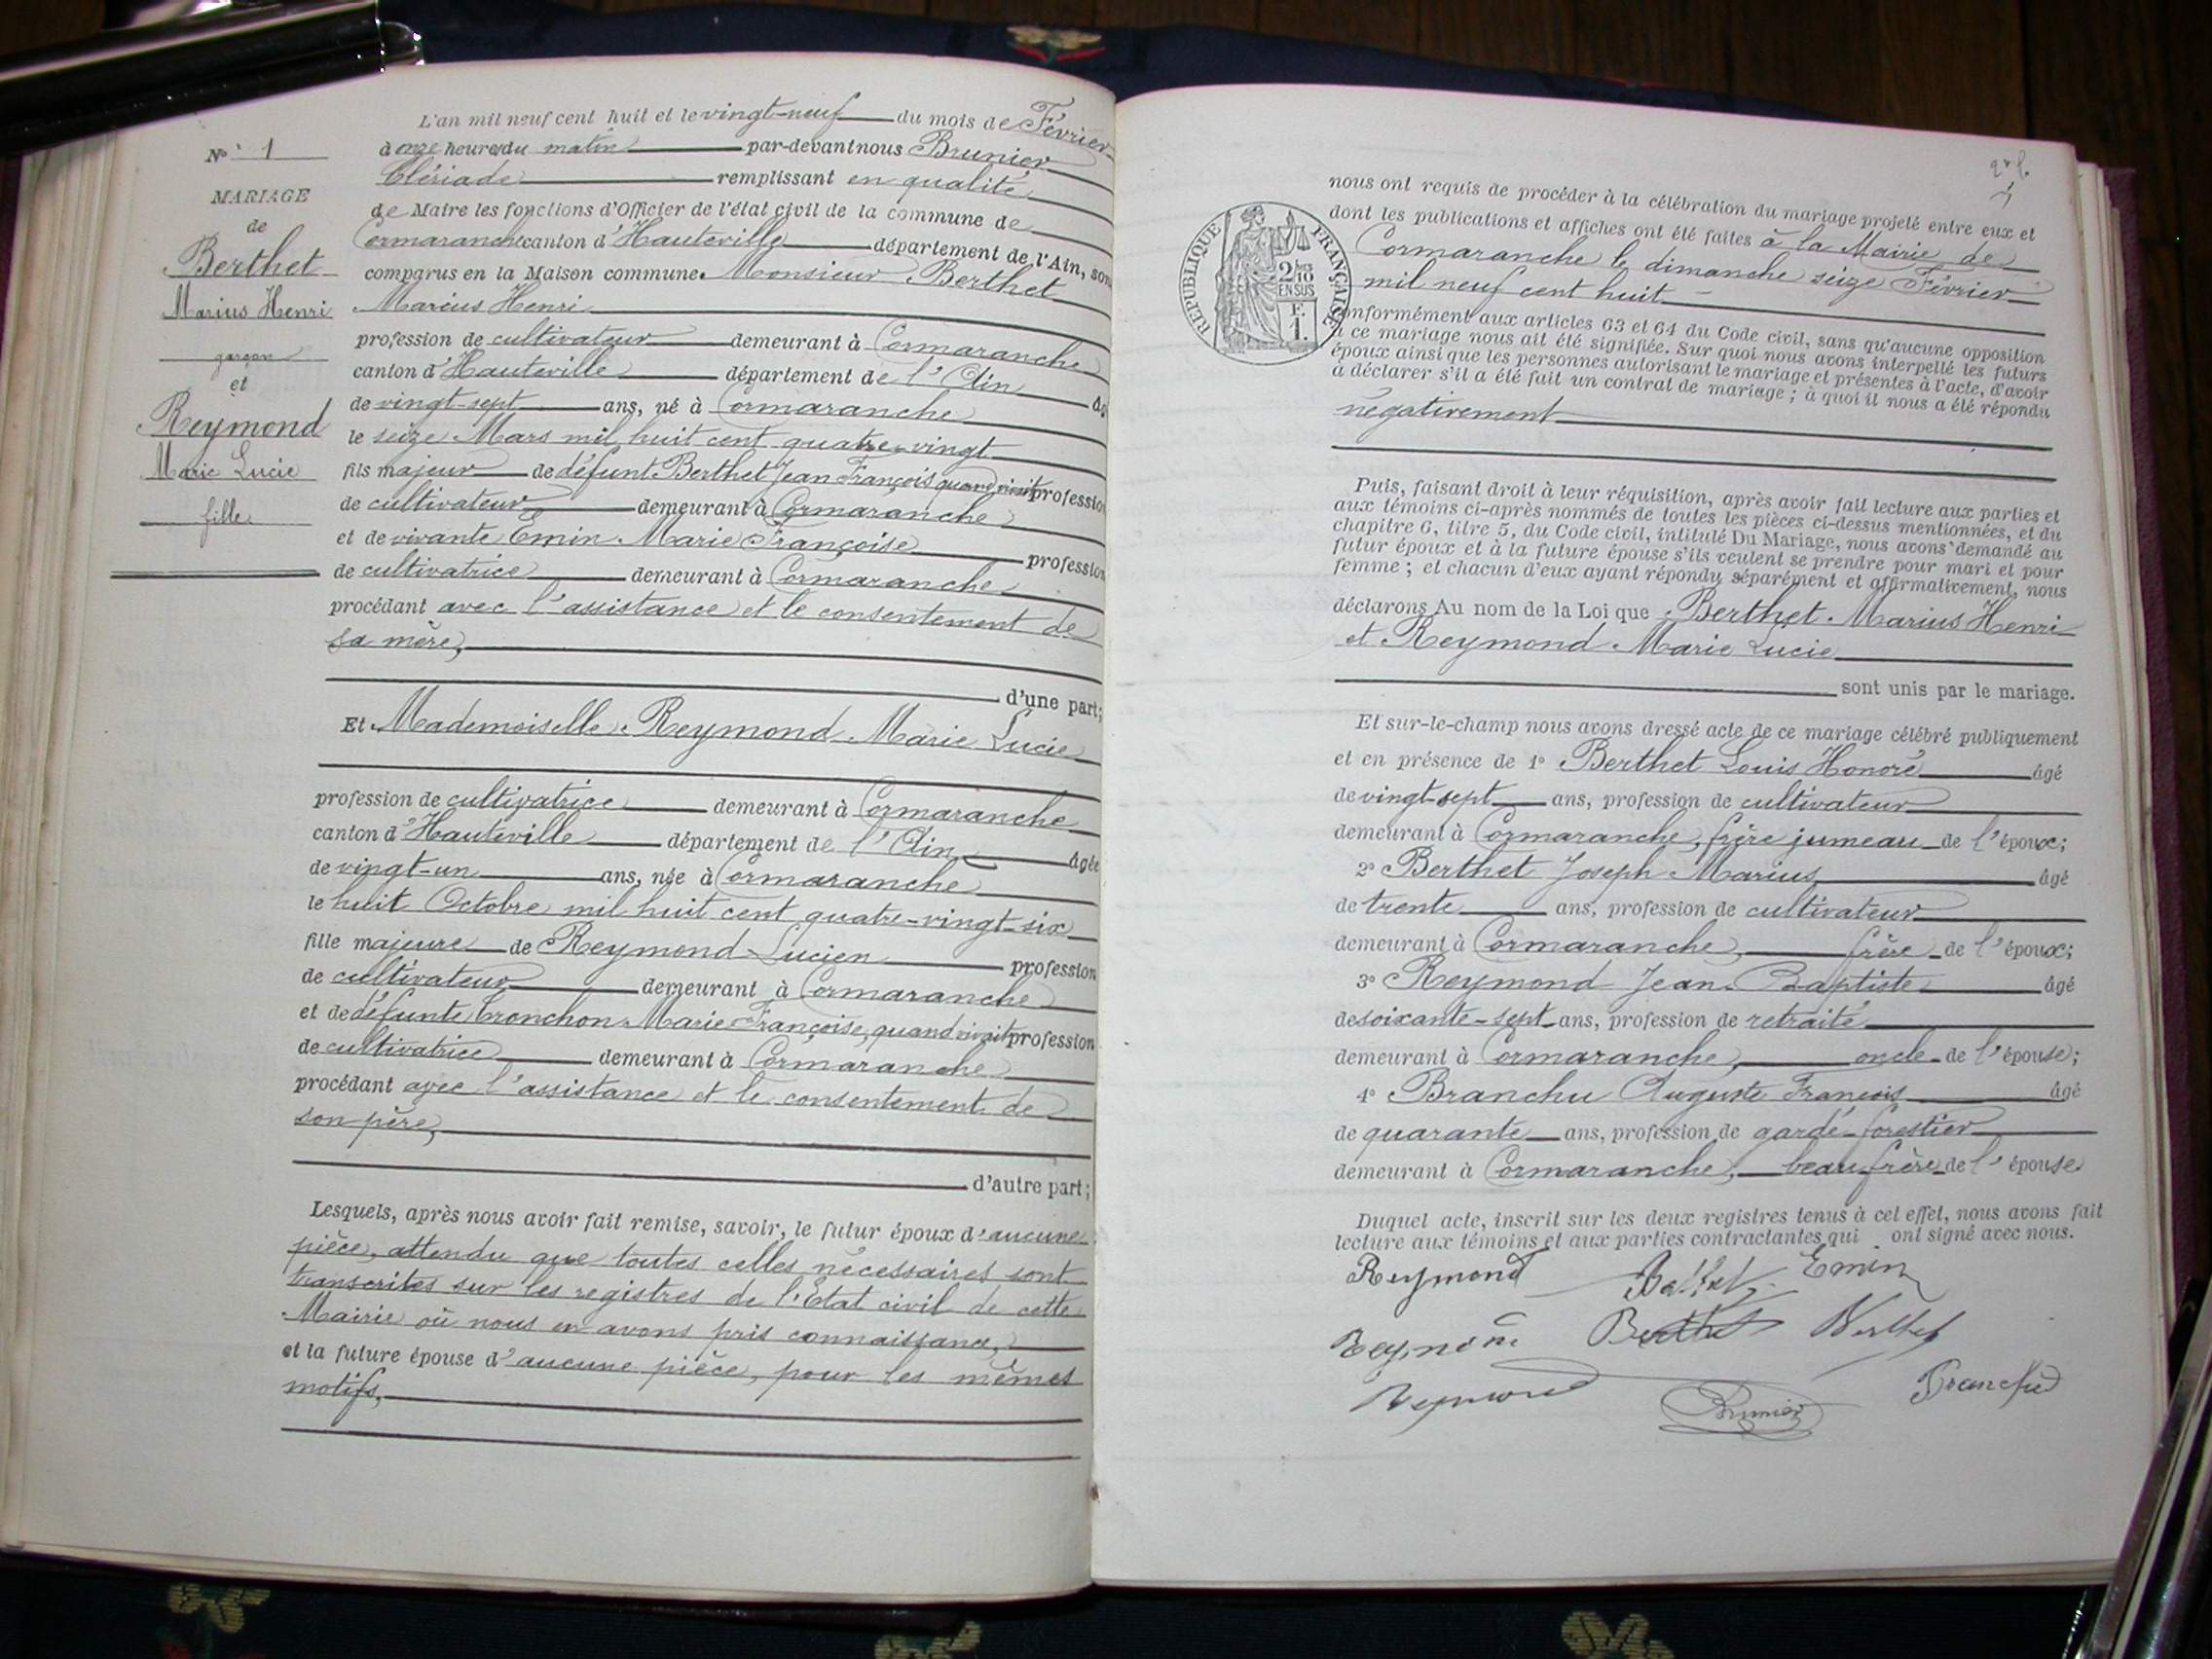 N° 1
MARIAGE
de
Berthet
Marius Henri
garçon
et
Reymond
Marie Lucie
fille
L'an mil neuf cent huit et le vingt-neuf du mois de Février
à onze heures du matin par-devant nous Brunier
Clériade remplissant en qualité
de Maire les fonctions d'Officier de l'état civil de la commune de
Cormaranche canton d'Hauteville département de l'Ain, sont
comparus en la Maison commune. Monsieur Berthet
Marius Henri
profession de cultivateur demeurant à Cormaranche
canton d'Hauteville département de l'Ain âgé
de vingt-sept ans, né à Cormaranche
le seize Mars mil huit cent quatre-vingt
fils majeur de défunt Berthet Jean François quand vivait profession
de cultivateur demeurant à Cormaranche
et de vivante Emin Marie Françoise profession
de cultivatrice demeurant à Cormaranche
procédant avec l'assistance et le consentement de
sa mère,
d'une part;
Et Mademoiselle Reymond Marie Lucie
profession de cultivatrice demeurant à Cormaranche
canton d'Hauteville département de l'Ain âgée
de vingt-un ans, née à Cormaranche
le huit Octobre mil huit cent quatre-vingt-six
fille majeure de Reymond Lucien profession
de cultivateur demeurant à Cormaranche
et de défunte Cronchon Marie Françoise, quand vivait profession
de cultivatrice demeurant à Cormaranche
procédant avec l'assistance et le consentement de
son père,
d'autre part;
Lesquels, après nous avoir fait remise, savoir, le futur époux d'aucune
pièce, attendu que toutes celles nécessaires sont
transcrites sur les registres de l'Etat civil de cette
Mairie où nous en avons pris connaissance,
et la future épouse d'aucune pièce, pour les mêmes
motifs,
REPUBLIQUE FRANÇAISE
2/10
EN SUS
F.
1.
nous ont requis de procéder à la célébration du mariage projeté entre eux et
dont les publications et affiches ont été faites à la Mairie de
Cormaranche le dimanche seize Février
mil neuf cent huit
conformément aux articles 63 et 64 du Code civil, sans qu'aucune opposition
à ce mariage nous ait été signifiée. Sur quoi nous avons interpellé les futurs
époux ainsi que les personnes autorisant le mariage et présentes à l'acte, d'avoir
à déclarer s'il a été fait un contrat de mariage; à quoi il nous a été répondu
négativement
Puis, faisant droit à leur réquisition, après avoir fait lecture aux parties et
aux témoins ci-après nommés de toutes les pièces ci-dessus mentionnées, et du
chapitre 6, titre 5, du Code civil, intitulé Du Mariage, nous avons demandé au
futur époux et à la future épouse s'ils veulent se prendre pour mari et pour
femme; et chacun d'eux ayant répondu séparément et affirmativement, nous
déclarons Au nom de la Loi que Berthet Marius Henri
et Reymond Marie Lucie
sont unis par le mariage.
Et sur-le-champ nous avons dressé acte de ce mariage célébré publiquement
et en présence de 1° Berthet Louis Honoré âgé
de vingt-sept ans, profession de cultivateur
demeurant à Cormaranche, frère jumeau de l'époux;
2° Berthet Joseph Marius âgé
de trente ans, profession de cultivateur
demeurant à Cormaranche, frère de l'époux;
3° Reymond Jean Baptiste âgé
de soixante-sept ans, profession de retraité
demeurant à Cormaranche, oncle de l'épouse;
4° Branchu Auguste François âgé
de quarante ans, profession de garde-forestier
demeurant à Cormaranche, beau-frère de l'épouse
Duquel acte, inscrit sur les deux registres tenus à cet effet, nous avons fait
lecture aux témoins et aux parties contractantes qui ont signé avec nous.
Reymond Berthet Emin
Reymond Berthet Berthet
Reymond Brunier Branchu